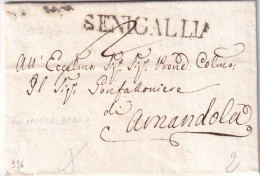 SENIGALLIA
All' Eccelmo Sig. Sig. Prone Colmo
Il Sig. Gonfaloniere
di
Amandola
396
2